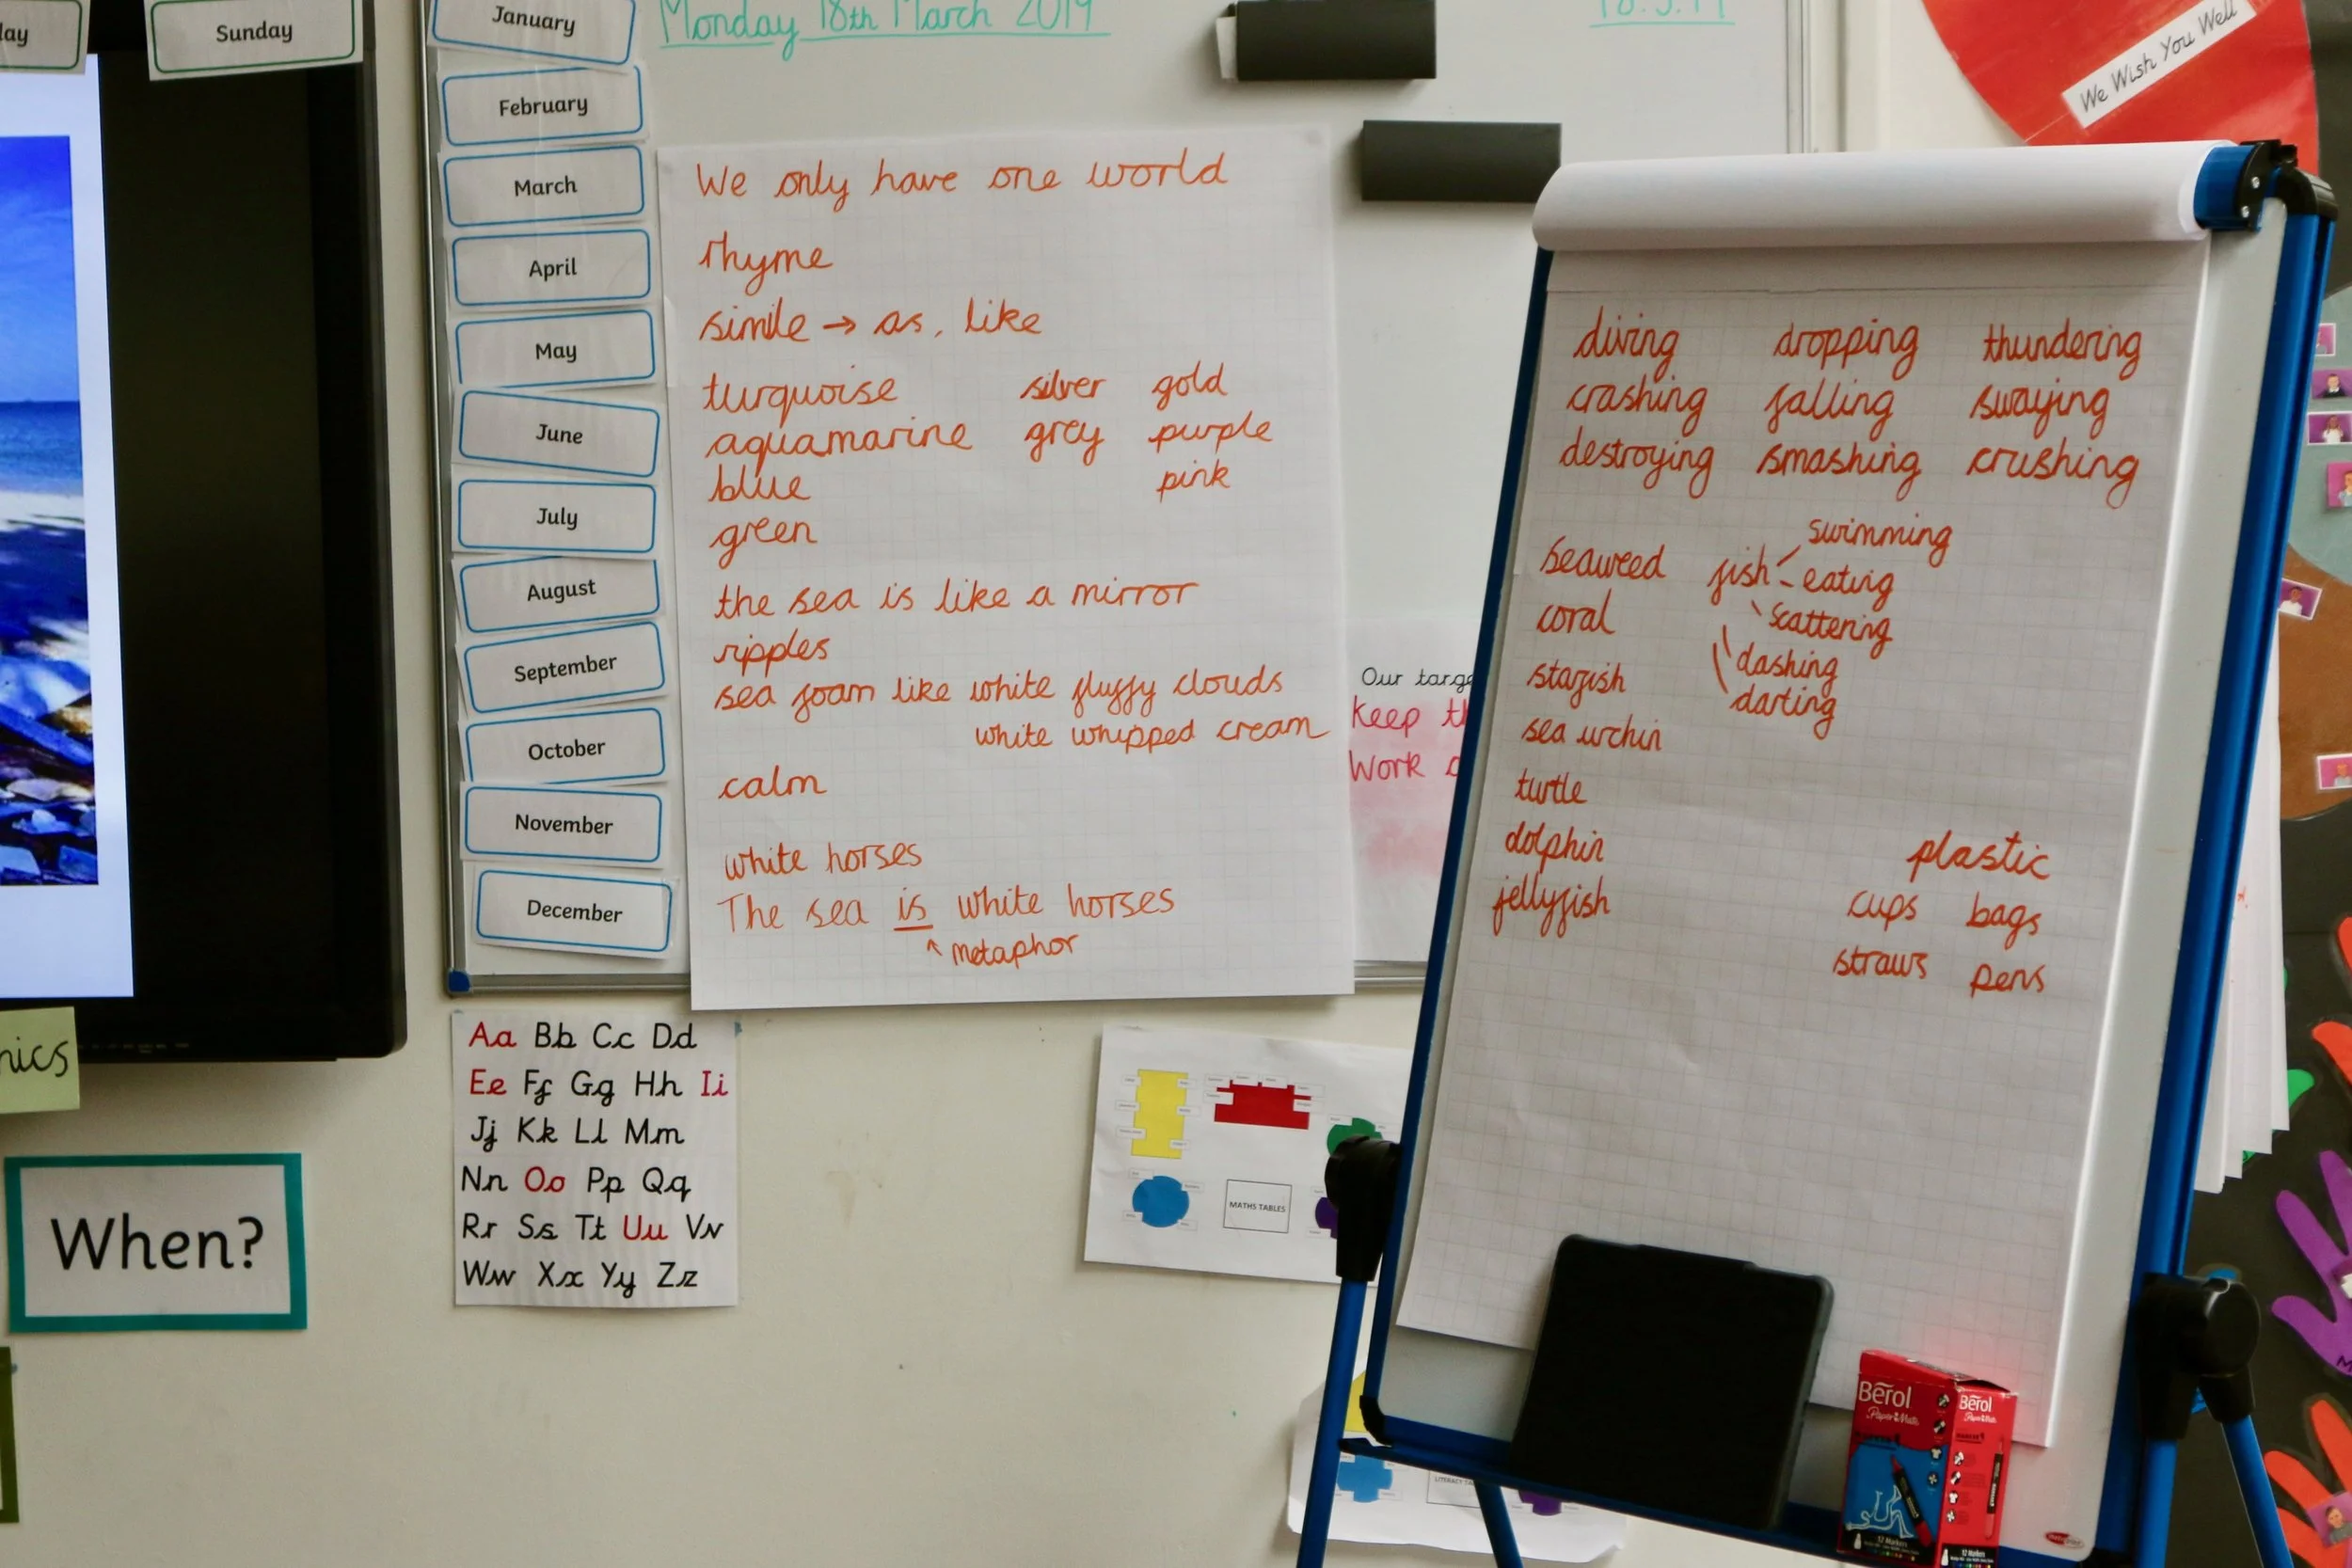 Sunday
January
February
March
April
May
June
July
August
September
October
November
December
Monday 18th March 2019
We only have one world
rhyme
simile → as, like
turquoise silver gold
aquamarine grey purple
blue pink
green
the sea is like a mirror
ripples
sea foam like white fluffy clouds
white whipped cream
calm
white horses
The sea is white horses
metaphor
Our
Keep
Work
We Wish You Well
diving dropping thundering
crashing falling swaying
destroying smashing crushing
seaweed fish swimming
eating
coral scattering
starfish dashing
darting
sea urchin
turtle
dolphin
jellyfish
plastic
cups bags
straws pens
Aa Bb Cc Dd
Ee Ff Gg Hh Ii
Jj Kk Ll Mm
Nn Oo Pp Qq
Rr Ss Tt Uu Vv
Ww Xx Yy Zz
When?
MATHS TABLES
Berol
PaperMate
12 Markers
Berol